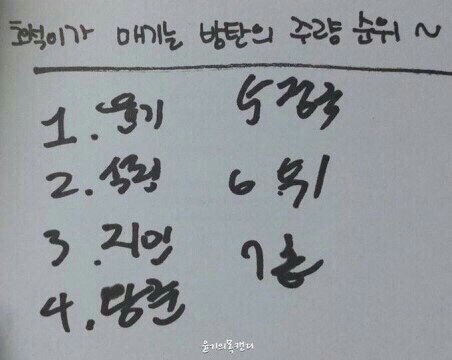 호석이가 매기는 방탄의 주량 순위 ~
1. 윤기
2. 석진
3. 지민
4. 남준
5 정국
6 뷔
7 홉
윤기의폭캔디